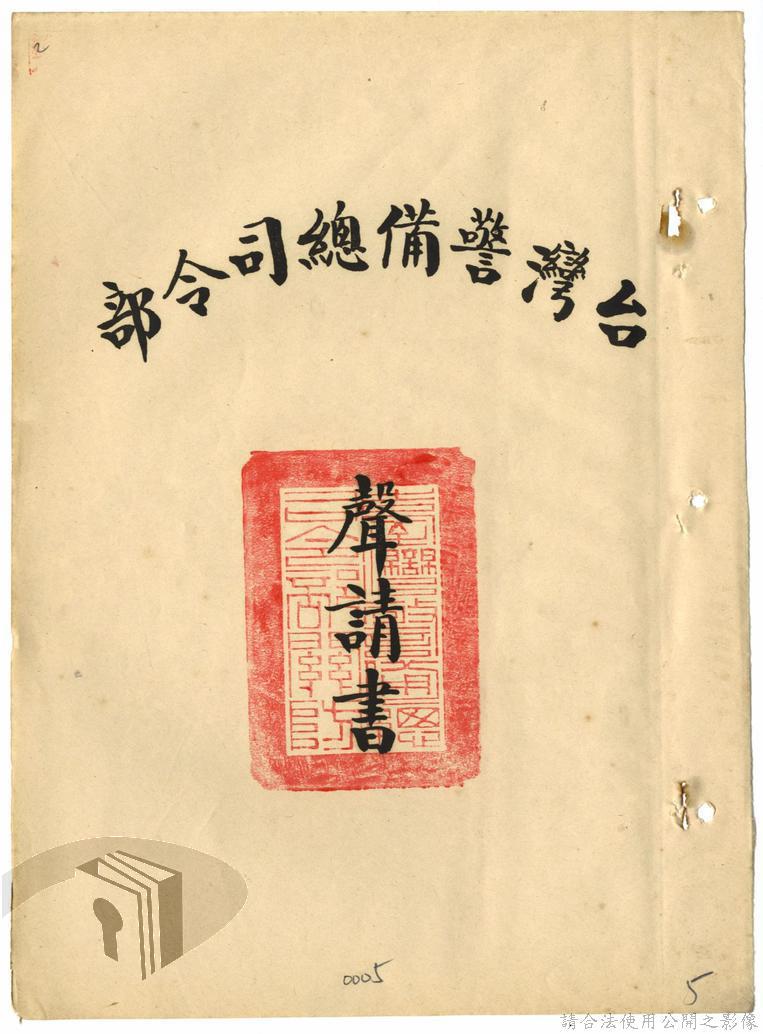 2
台灣警備總司令部
聲請書
0005
5
請合法使用公開之影像